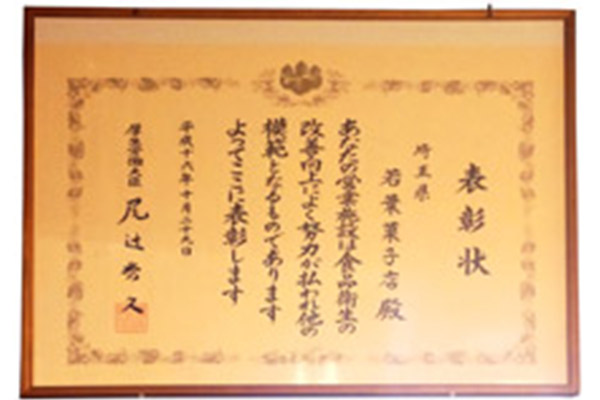 表彰状
埼玉県
若葉菓子店 殿
あなたの営業施設は食品衛生の
改善向上によく努力が払われ他の
模範となるものであります
よってここに表彰します
平成十六年十月二十九日
厚生労働大臣 尾辻秀久